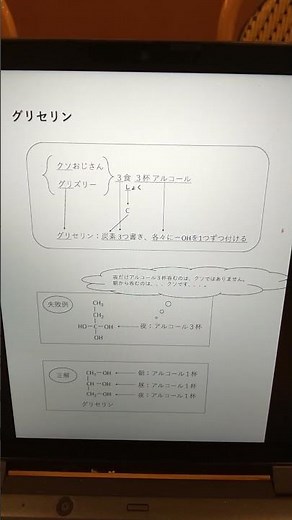 グリセリン
クソおじさん
グリズリー
3食 3杯 アルコール
しょく
C
グリセリン：炭素3つ書き、各々に－OHを1つずつ付ける
夜だけアルコール3杯呑むのは、クソではありません。
朝から呑むのは、、、クソです、、、。
失敗例
CH₃
CH₂
HO－C－OH ← 夜：アルコール3杯
OH
正解
CH₂－OH ← 朝：アルコール1杯
CH－OH ← 昼：アルコール1杯
CH₂－OH ← 夜：アルコール1杯
グリセリン